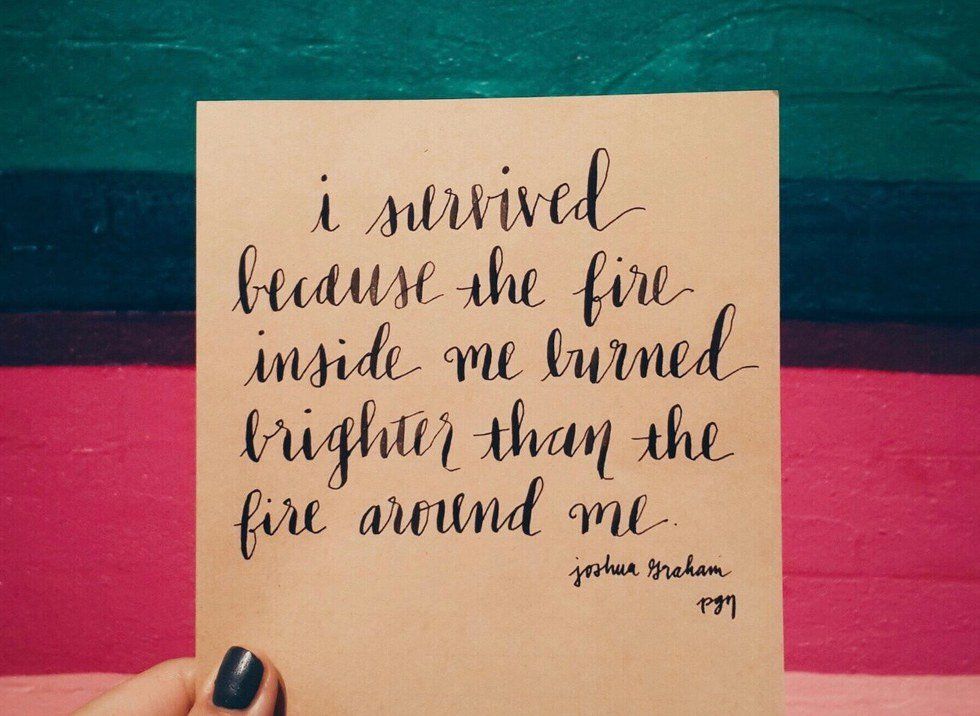 i survived
because the fire
inside me burned
brighter than the
fire around me.
joshua graham
pgn